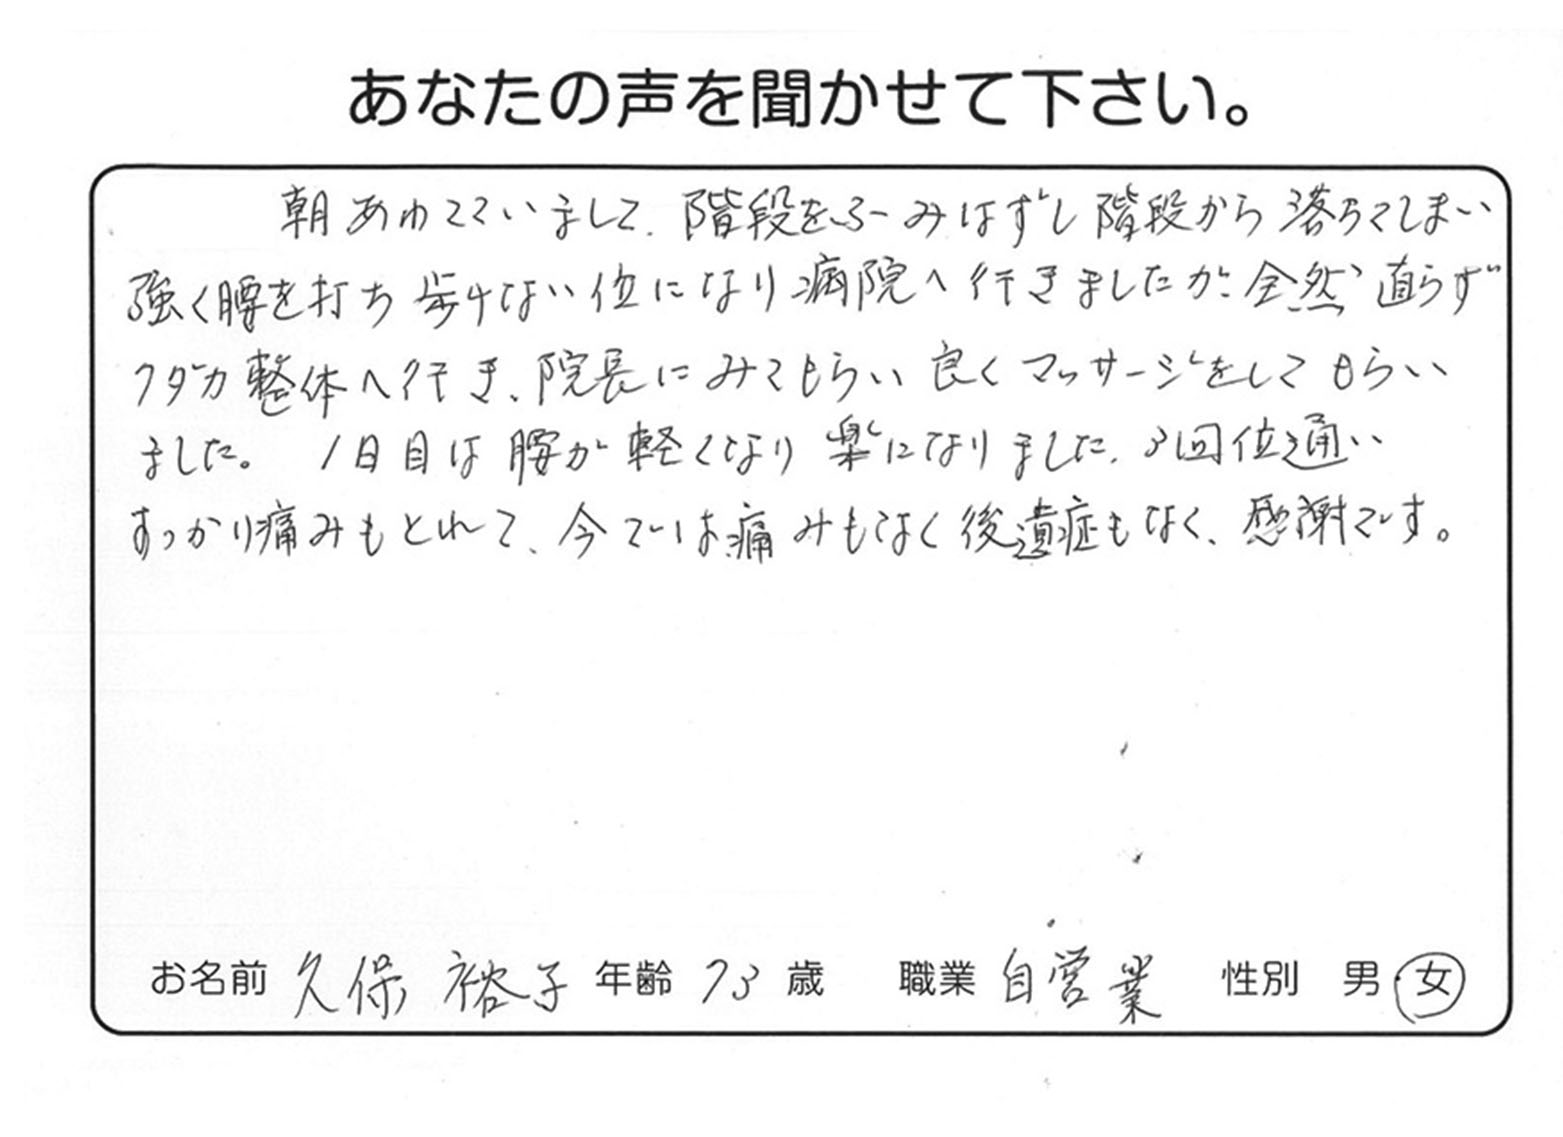 あなたの声を聞かせて下さい。
朝あわてていまして、階段をふーみはずし階段から落ちてしまい
強く腰を打ち歩けない位になり病院へ行きましたが全然直らず
フダカ整体へ行き、院長にみてもらい良くマッサージをしてもらい
ました。 1日目は腰が軽くなり楽になりました、3回位通い
すっかり痛みもとれて、今では痛みもなく後遺症もなく、感謝です。
お名前 久保 裕子 年齢 73 歳 職業 自営業 性別 男 女